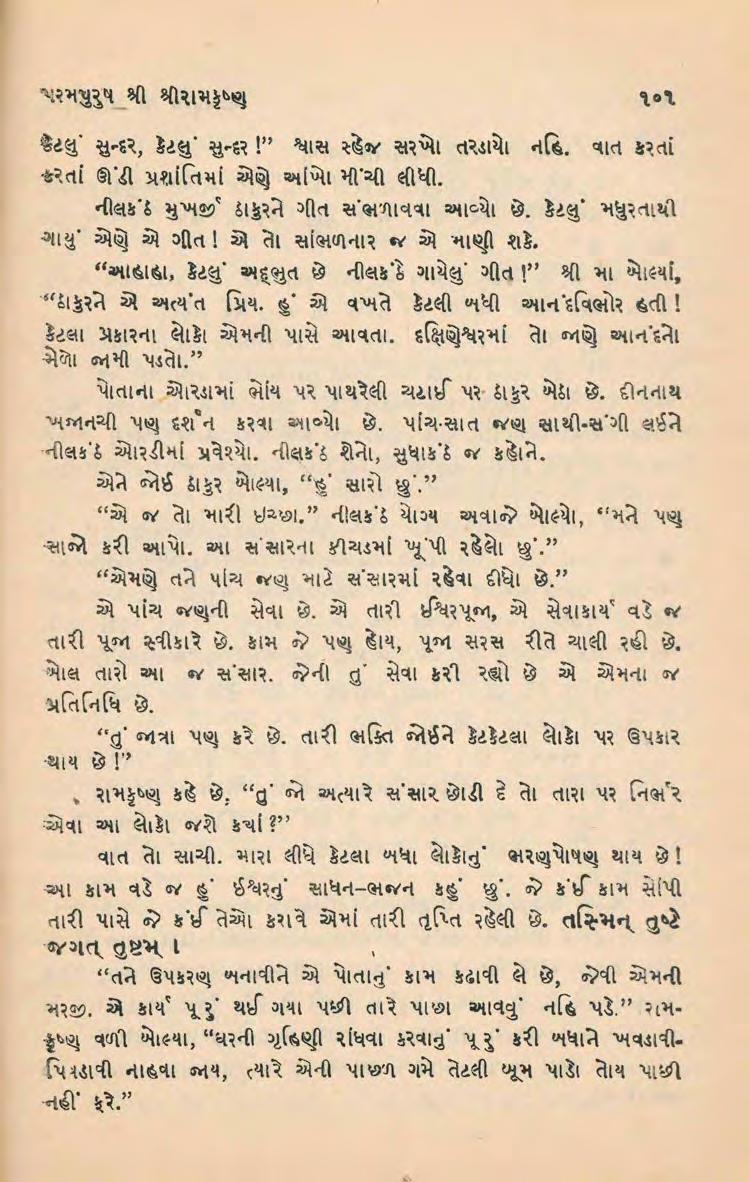 પરમપુરુષ શ્રી શ્રીરામકૃષ્ણ ૧૦૧
કેટલું સુન્દર, કેટલું સુન્દર !” શ્વાસ સ્હેજ સરખો તરડાયો નહિ. વાત કરતાં
કરતાં ઊંડી પ્રશાંતિમાં એણે આંખો મીંચી લીધી.
નીલકંઠ મુખર્જી ઠાકુરને ગીત સંભળાવવા આવ્યો છે. કેટલું મધુરતાથી
ગાયું એણે એ ગીત ! એ તો સાંભળનાર જ એ માણી શકે.
“આહાહા, કેટલું અદ્ભુત છે નીલકંઠે ગાયેલું ગીત !” શ્રી મા બોલ્યાં,
“ઠાકુરને એ અત્યંત પ્રિય. હું એ વખતે કેટલી બધી આનંદવિભોર હતી !
કેટલા પ્રકારના લોકો એમની પાસે આવતા. દક્ષિણેશ્વરમાં તો જાણે આનંદનો
મેળો જામી પડતો.”
પોતાના ઓરડામાં ભોંય પર પાથરેલી ચટાઈ પર ઠાકુર બેઠા છે. દીનનાથ
ખજાનચી પણ દર્શન કરવા આવ્યો છે. પાંચ-સાત જણ સાથી-સંગી લઈને
નીલકંઠ ઓરડીમાં પ્રવેશ્યો. નીલકંઠ શેનો, સુધાકંઠ જ કહોને.
એને જોઈ ઠાકુર બોલ્યા, “હું સારો છું.”
“એ જ તો મારી ઇચ્છા.” નીલકંઠ યોગ્ય અવાજે બોલ્યો, “મને પણ
સાજો કરી આપો. આ સંસારના કીચડમાં ખૂંપી રહેલો છું.”
“એમણે તને પાંચ જણ માટે સંસારમાં રહેવા દીધો છે.”
એ પાંચ જણની સેવા છે. એ તારી ઈશ્વરપૂજા, એ સેવાકાર્ય વડે જ
તારી પૂજા સ્વીકારે છે. કામ જે પણ હોય, પૂજા સરસ રીતે ચાલી રહી છે.
બોલ તારો આ જ સંસાર. જેની તું સેવા કરી રહ્યો છે એ એમના જ
પ્રતિનિધિ છે.
“તું જાત્રા પણ કરે છે. તારી ભક્તિ જોઈને કેટકેટલા લોકો પર ઉપકાર
થાય છે !”
રામકૃષ્ણ કહે છે, “તું જો અત્યારે સંસાર છોડી દે તો તારા પર નિર્ભર
એવા આ લોકો જશે ક્યાં ?”
વાત તો સાચી. મારા લીધે કેટલા બધા લોકોનું ભરણપોષણ થાય છે !
આ કામ વડે જ હું ઈશ્વરનું સાધન–ભજન કહું છું. જે કંઈ કામ સોંપી
તારી પાસે જે કંઈ તેઓ કરાવે એમાં તારી તૃપ્તિ રહેલી છે. તસ્મિન્ તુષ્ટે
જગત્ તુષ્ટમ્ ।
“તને ઉપકરણ બનાવીને એ પોતાનું કામ કઢાવી લે છે, જેવી એમની
મરજી. એ કાર્ય પૂરું થઈ ગયા પછી તારે પાછા આવવું નહિ પડે.” રામ-
કૃષ્ણ વળી બોલ્યા, “ઘરની ગૃહિણી રાંધવા કરવાનું પૂરું કરી બધાને ખવડાવી-
પિવડાવી નાહવા જાય, ત્યારે એની પાછળ ગમે તેટલી બૂમ પાડો તોય પાછી
નહીં ફરે.”